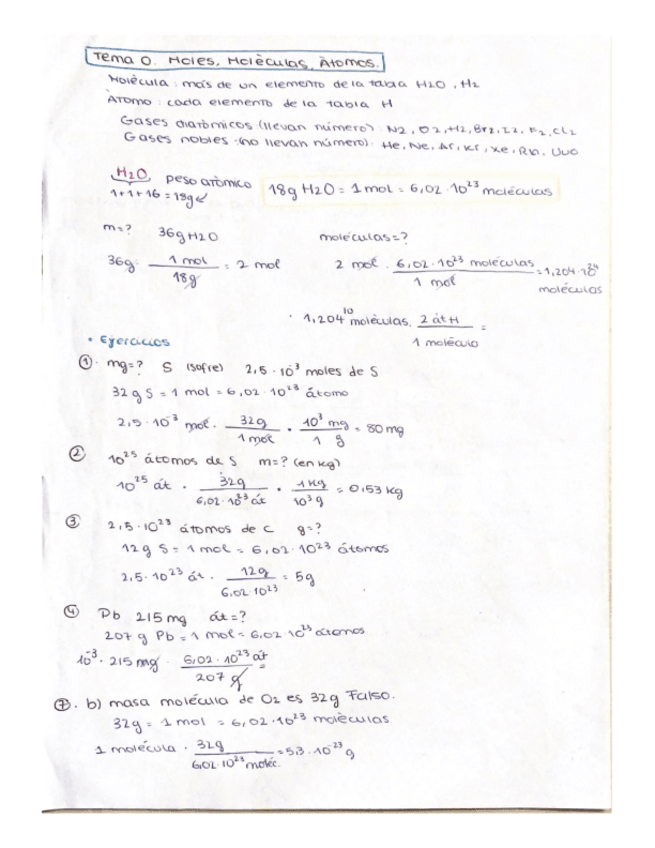 Tema 0. Moles, Moléculas, Átomos.
Molécula: más de un elemento de la tabla H2O, H2
Átomo: cada elemento de la tabla H
Gases diatómicos (llevan número): N2, O2, H2, Br2, I2, F2, Cl2
Gases nobles: (no llevan número): He, Ne, Ar, Kr, Xe, Rn, Uuo
H2O peso atómico
1+1+16 = 18g
18g H2O = 1 mol = 6,02·10²³ moléculas
m=? 36g H2O moléculas=?
36g · 1 mol / 18g = 2 mol
2 mol · 6,02·10²³ moléculas / 1 mol = 1,204·10²⁴ moléculas
· 1,204¹⁰ moléculas · 2 át H / 1 molécula =
• Ejercicios
① mg=? S (sofre) 2,5·10⁻³ moles de S
32 g S = 1 mol = 6,02·10²³ átomo
2,5·10⁻³ mol · 32g / 1 mol · 10³ mg / 1 g = 80 mg
② 10²⁵ átomos de S m=? (en kg)
10²⁵ át · 32g / 6,02·10²³ át · 1 kg / 10³ g = 0,53 kg
③ 2,5·10²³ átomos de C g=?
12g S = 1 mol = 6,02·10²³ átomos
2,5·10²³ át · 12g / 6,02·10²³ = 5g
④ Pb 215 mg át=?
207 g Pb = 1 mol = 6,02·10²³ átomos
10⁻³ · 215 mg · 6,02·10²³ át / 207 g =
⑦. b) masa molécula de O2 es 32g Falso.
32g = 1 mol = 6,02·10²³ moléculas
1 molécula · 32g / 6,02·10²³ moléc. = 5,3·10⁻²³ g